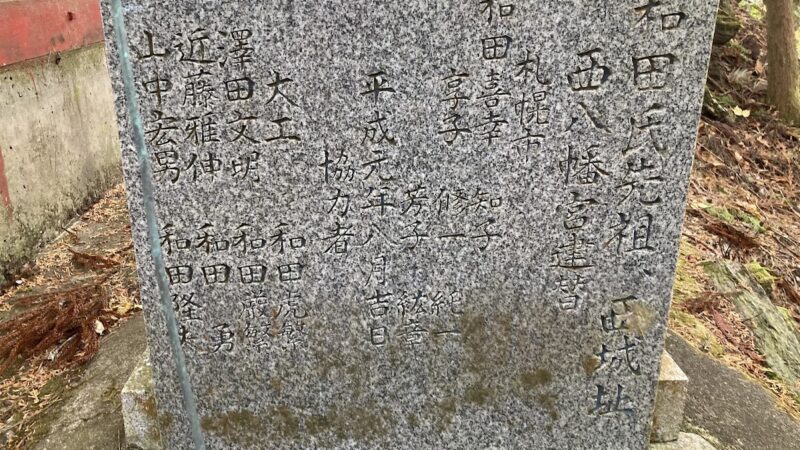 和田氏先祖、西城址
西八幡宮建替
札幌市
和田喜幸 知子
享子 修一 純一
芳子 紘章
平成元年八月吉日
協力者
大工 和田虎繁
澤田文明 和田嚴繁
近藤雅伸 和田 勇
山中宏男 和田隆夫